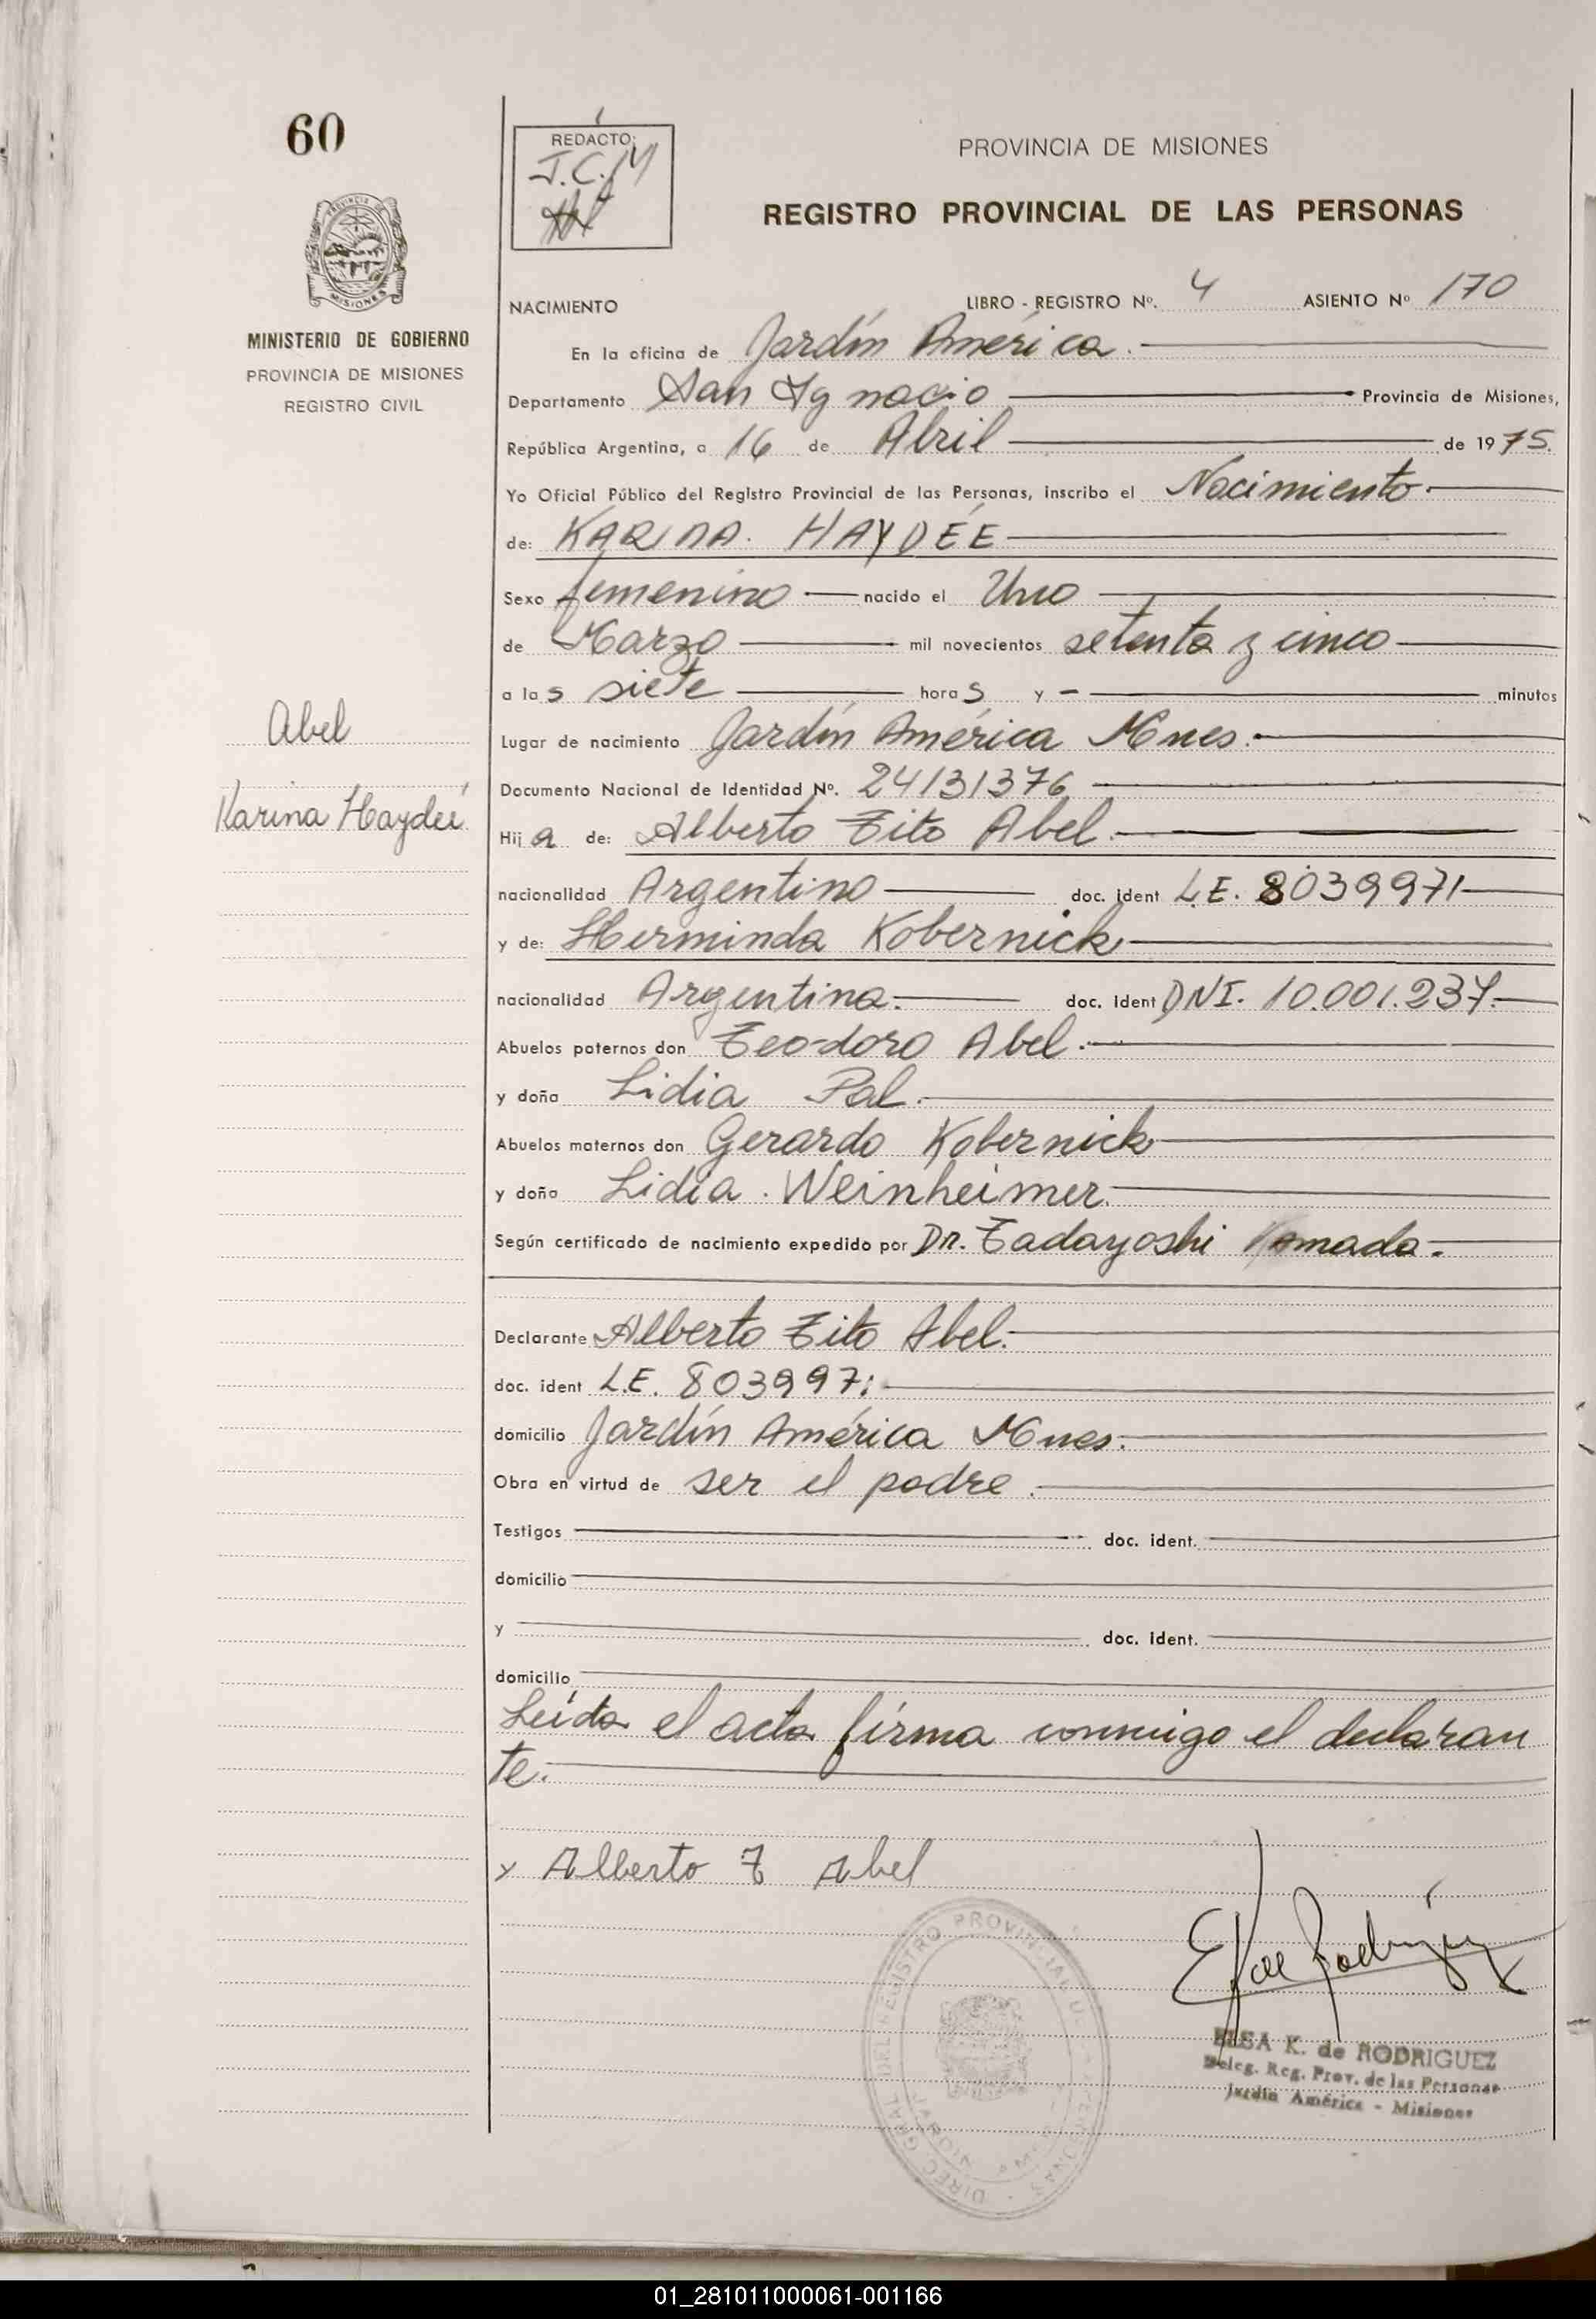 60
REDACTO:
J.C.M
PROVINCIA DE MISIONES
REGISTRO PROVINCIAL DE LAS PERSONAS
MISIONES
MINISTERIO DE GOBIERNO
PROVINCIA DE MISIONES
REGISTRO CIVIL
NACIMIENTO LIBRO - REGISTRO Nº. 4 ASIENTO Nº 170
En la oficina de Jardín América.
Departamento San Ignacio Provincia de Misiones,
República Argentina, a 16 de Abril de 1975.
Yo Oficial Público del Registro Provincial de las Personas, inscribo el Nacimiento
de: KARINA. HAYDÉE
Sexo femenino nacido el Uno
de Marzo mil novecientos setenta y cinco
a las siete horas y - minutos
Abel
Lugar de nacimiento Jardín América Mnes.
Documento Nacional de Identidad Nº. 24131376
Karina Haydeé
Hija de: Alberto Tito Abel.
nacionalidad Argentino doc. ident L.E. 8039971
y de: Herminda Kobernick
nacionalidad Argentina. doc. ident DNI. 10.001.237.
Abuelos paternos don Teodoro Abel.
y doña Lidia Pal.
Abuelos maternos don Gerardo Kobernick
y doña Lidia. Weinheimer.
Según certificado de nacimiento expedido por Dr. Tadayoshi Yamada.
Declarante Alberto Tito Abel.
doc. ident L.E. 8039971
domicilio Jardín América Mnes.
Obra en virtud de ser el padre.
Testigos doc. ident.
domicilio
y doc. ident.
domicilio
Leída el acta firma conmigo el declaran
te.
x Alberto T Abel
DIREC. GRAL DEL REGISTRO PROVINCIAL DE LAS PERSONAS
ELSA K. de RODRIGUEZ
Deleg. Reg. Prov. de las Personas
Jardín América - Misiones
01_281011000061-001166